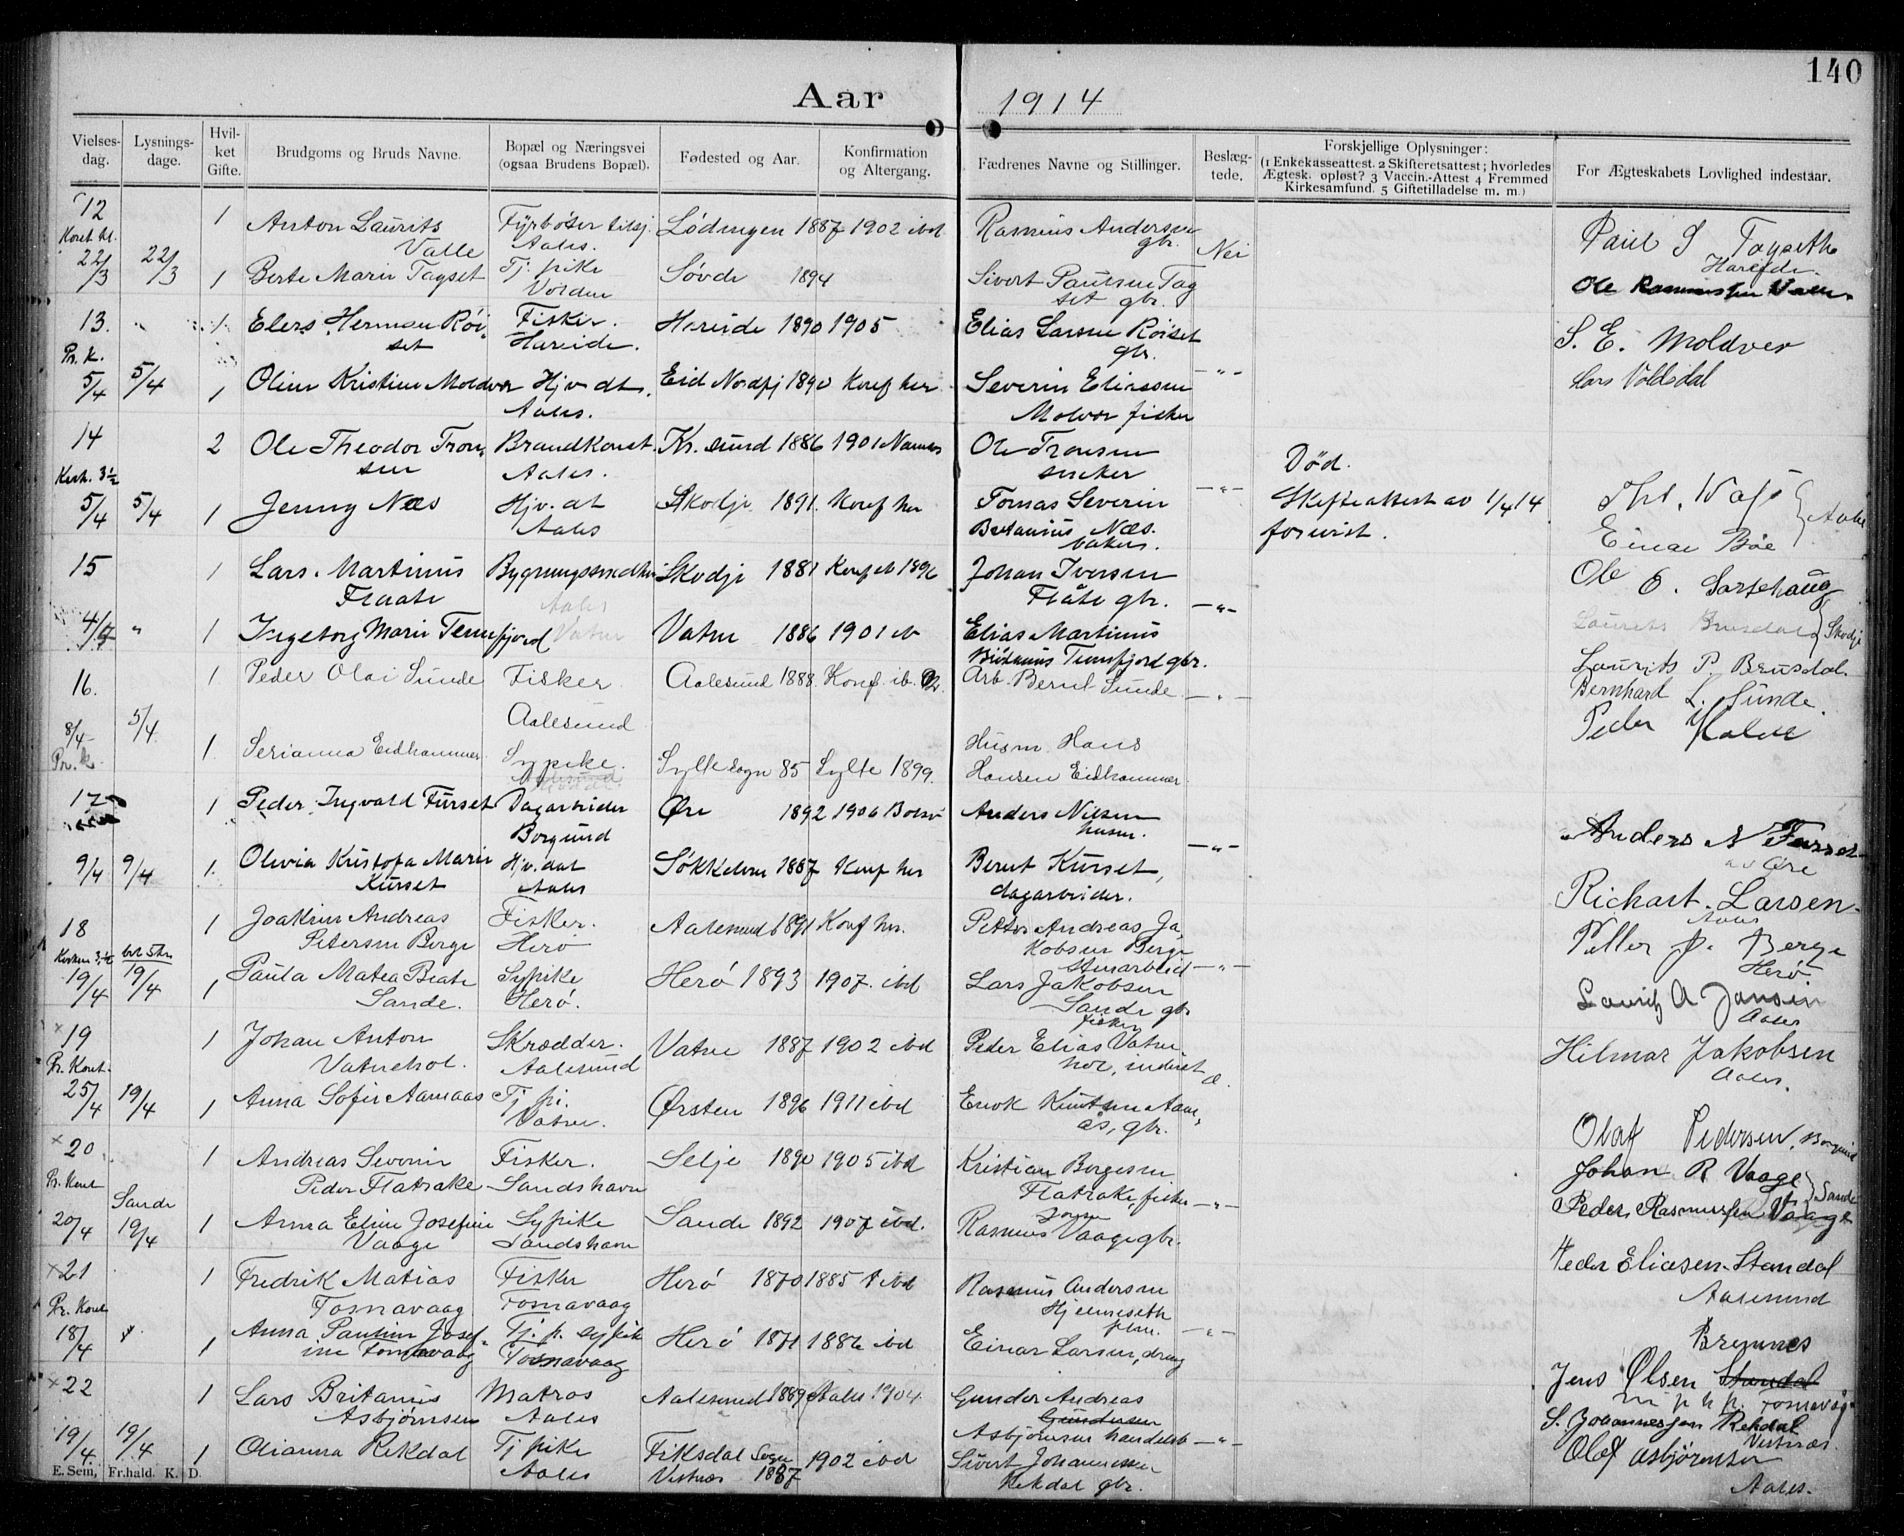 140
Aar 1914
Vielses-dag. Lysnings-dage. Hvil-ket Gifte. Brudgoms og Bruds Navne. Bopæl og Næringsvei (ogsaa Brudens Bopæl). Fødested og Aar. Konfirmation og Altergang. Fædrenes Navne og Stillinger. Beslæg-tede. Forskjellige Oplysninger: (1 Enkekasseattest. 2 Skifteretsattest; hvorledes Ægtesk. opløst? 3 Vaccin.-Attest 4 Fremmed Kirkesamfund. 5 Giftetilladelse m. m.) For Ægteskabets Lovlighed indestaar.
12 1 Anton Laurits Fyrbøter Lødingen 1887 1902 ibd Rasmus Andersen Paul S Tagseth
Valle Aales. gbr. Nei Hareide.
22/3 22/3 1 Berte Marie Tagset Tj. pike Søvde 1894 Sivert Paulsen Tag
Volden set gbr. Ole Rasmussen Valle
13. 1 Elers Herman Röi Fisker. Hareide 1890 1905 Elias Larsen Röiset S. E. Moldver
set Hareide. gbr.
Pr. k.
5/4 5/4 1 Oline Kristine Moldver Hjv. dt. Eid Nordfj 1890 Konf her Severin Eliassen -"- Lars Voldsdal
Aales. Molvær fisker
14 2 Ole Theodor Tron Brandkonst. Kr. sund 1886 1901 Ole Tronsen Død.
sen Aales. sneker
5/4 5/4 1 Jenny Næs Hjv. dt Skodje 1891. Konf her Tomas Severin -"- Skifteattest av 1/4 14
Aales Næs. forevist.
baker. Einar Böe
15 1 Lars Martinus Skodje 1881 Konf ib 1896 Johan Iversen
Flaate Aales Flåte gbr. -"-
4/7 " 1 Ingeborg Marie Tennfjord Vatne Vatne 1886 1901 ib Elias Martinus Skodje
Tennfjord gbr. Laurits P. Brusdal
16. 1 Peder Olai Sunde Fisker Aalesund 1888. Konf. ib. Arb. Bernt Sunde. -"- Bernhard L. Sunde.
8/4 5/4 Aalesund Peder
Pr. k. 1 Serianna Eidhammer Sypike. Syltesogn 85 Sylte 1899. Husm. Hans
Hansen Eidhammer.
17 1 Peder Ingvald Furset Dagarbeider Øre 1892 1906 Anders Nilsen Anders N Furset
Borgund husm. -"- av Øre
9/4 9/4 1. Olivia Kristofa Marie Hjv. dat Søkkelven 1887 Konf her Bernt Kurset,
Kurset Aales dagarbeider. Richart Larsen
18 1 Joakim Andreas Fisker. Aalesund 1891 Konf her. Petter Andreas Ja, Aales
Petersen Berge Herö kobsen Berge Petter P. Berge
stenarbeid -"- Herö
19/4 19/4 1 Paula Matea Beate Sypike Herö 1893 1907. ibd Lars Jakobsen
Sande. Herö. Sande gbr Lauritz A Jansen
fisker Aales
×19 1 Johan Anton Skrædder. Vatne 1887 1902 ibd Peder Elias Vatne Hilmar Jakobsen
Pr. Kont. Vatnehol. Aalesund hol, inderst Aales.
25/4 19/4 1 Anna Sofie Aamaas Tj. pi. Ørsten 1896 1911 ibd Enok Knutsen Aam,
Vatne. ås, gbr. Olaf Pedersen, Borgund
×20 1 Andreas Severin Fisker. Selje 1890 1905 ibd Kristian Børgesen Johan R Vaage
Pr. Kont Peder Flatrake Sandshavn Flatrake, fisker -"- Sande
Sande
20/4 19/4 1 Anna Eline Josefine Sypike Sande 1892 1907 ibd. Rasmus Vaage gbr. Peder Rasmussen Vaage
Vaage Sandshavn
×21 1 Fredrik Matias Fisker Herö 1870 1885 ibd Rasmus Andersen Peder Eliasen Standal
Pr. Kont Fosnavaag Fosnavaag Hjelmeseth Aalesund
18/4 1 Anna Pauline Josef- Tj. p. sypik Herö 1871 1886 ibd Einar Larsen, dreng -"-
ine Fosnavaag Fosnavaag
×22 1 Lars Britanus Matros Aalesund 1889 Aales 1904. Gunder Andreas Jens Olsen Standal
Asbjørnsen Aales Gundersen Fosnavåg
19/4 19/4 Asbjørnsen handelsb -"- S. Johannessen Rekdal
1 Olianna Rekdal Tj pike Fiksdal Sogn 1902 ibd Sivert Johannessen Vestnæs
Aales Vestnæs 1887 Rekdal gbr. Olaf Asbjørnsen
Aales.
E. Sem, Fr.hald. K. D.